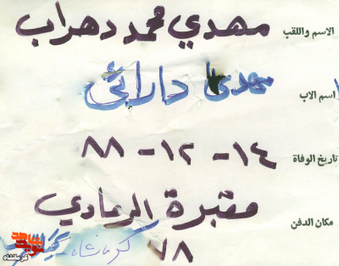 الاسم واللقب مهدي محمد دهراب
اسم الاب مهدی دارائی
تاريخ الوفاة ١٤ - ١٢ - ٨٨
مكان الدفن مقبرة الرمادي
٧٨ كرمانشاه